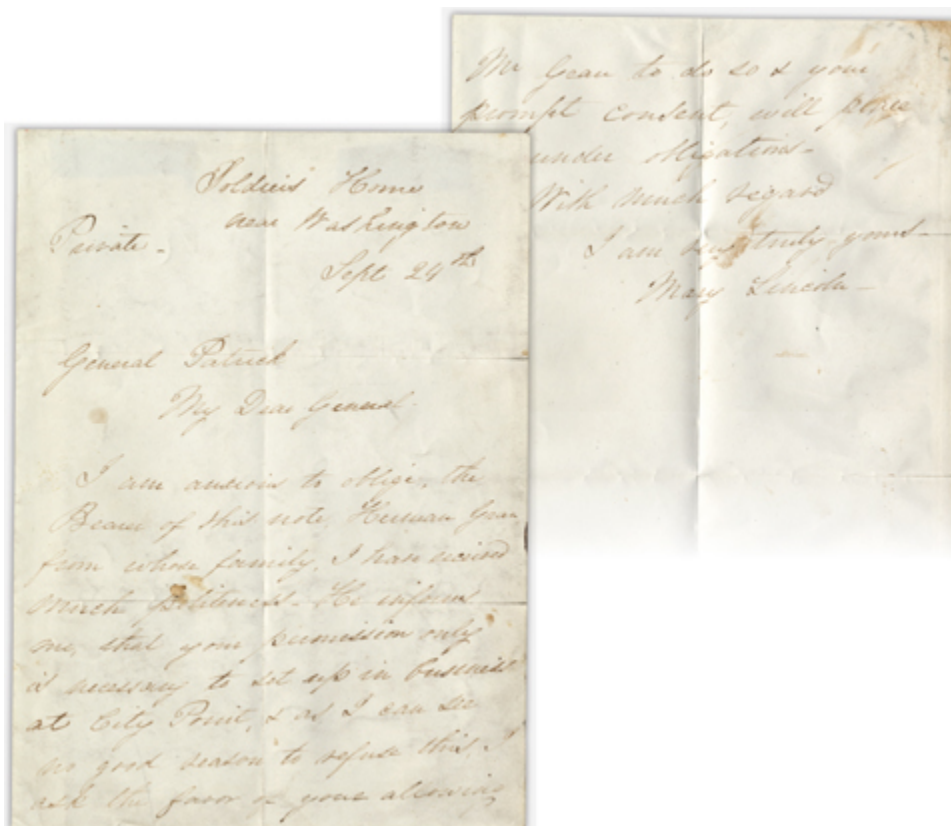 Soldiers' Home
near Washington
Private -
Sept 24th
General Patrick
My Dear General
I am anxious to oblige, the
Bearer of this note, Herman Grau
from whose family, I have received
much politeness - He informs
me, that your permission only
is necessary to set up in business
at City Point, & as I can see
no good reason to refuse this, I
ask the favor of your allowing
Mr Grau to do so & your
prompt consent, will
under obligations -
With much regard
I am very truly yours -
Mary Lincoln -